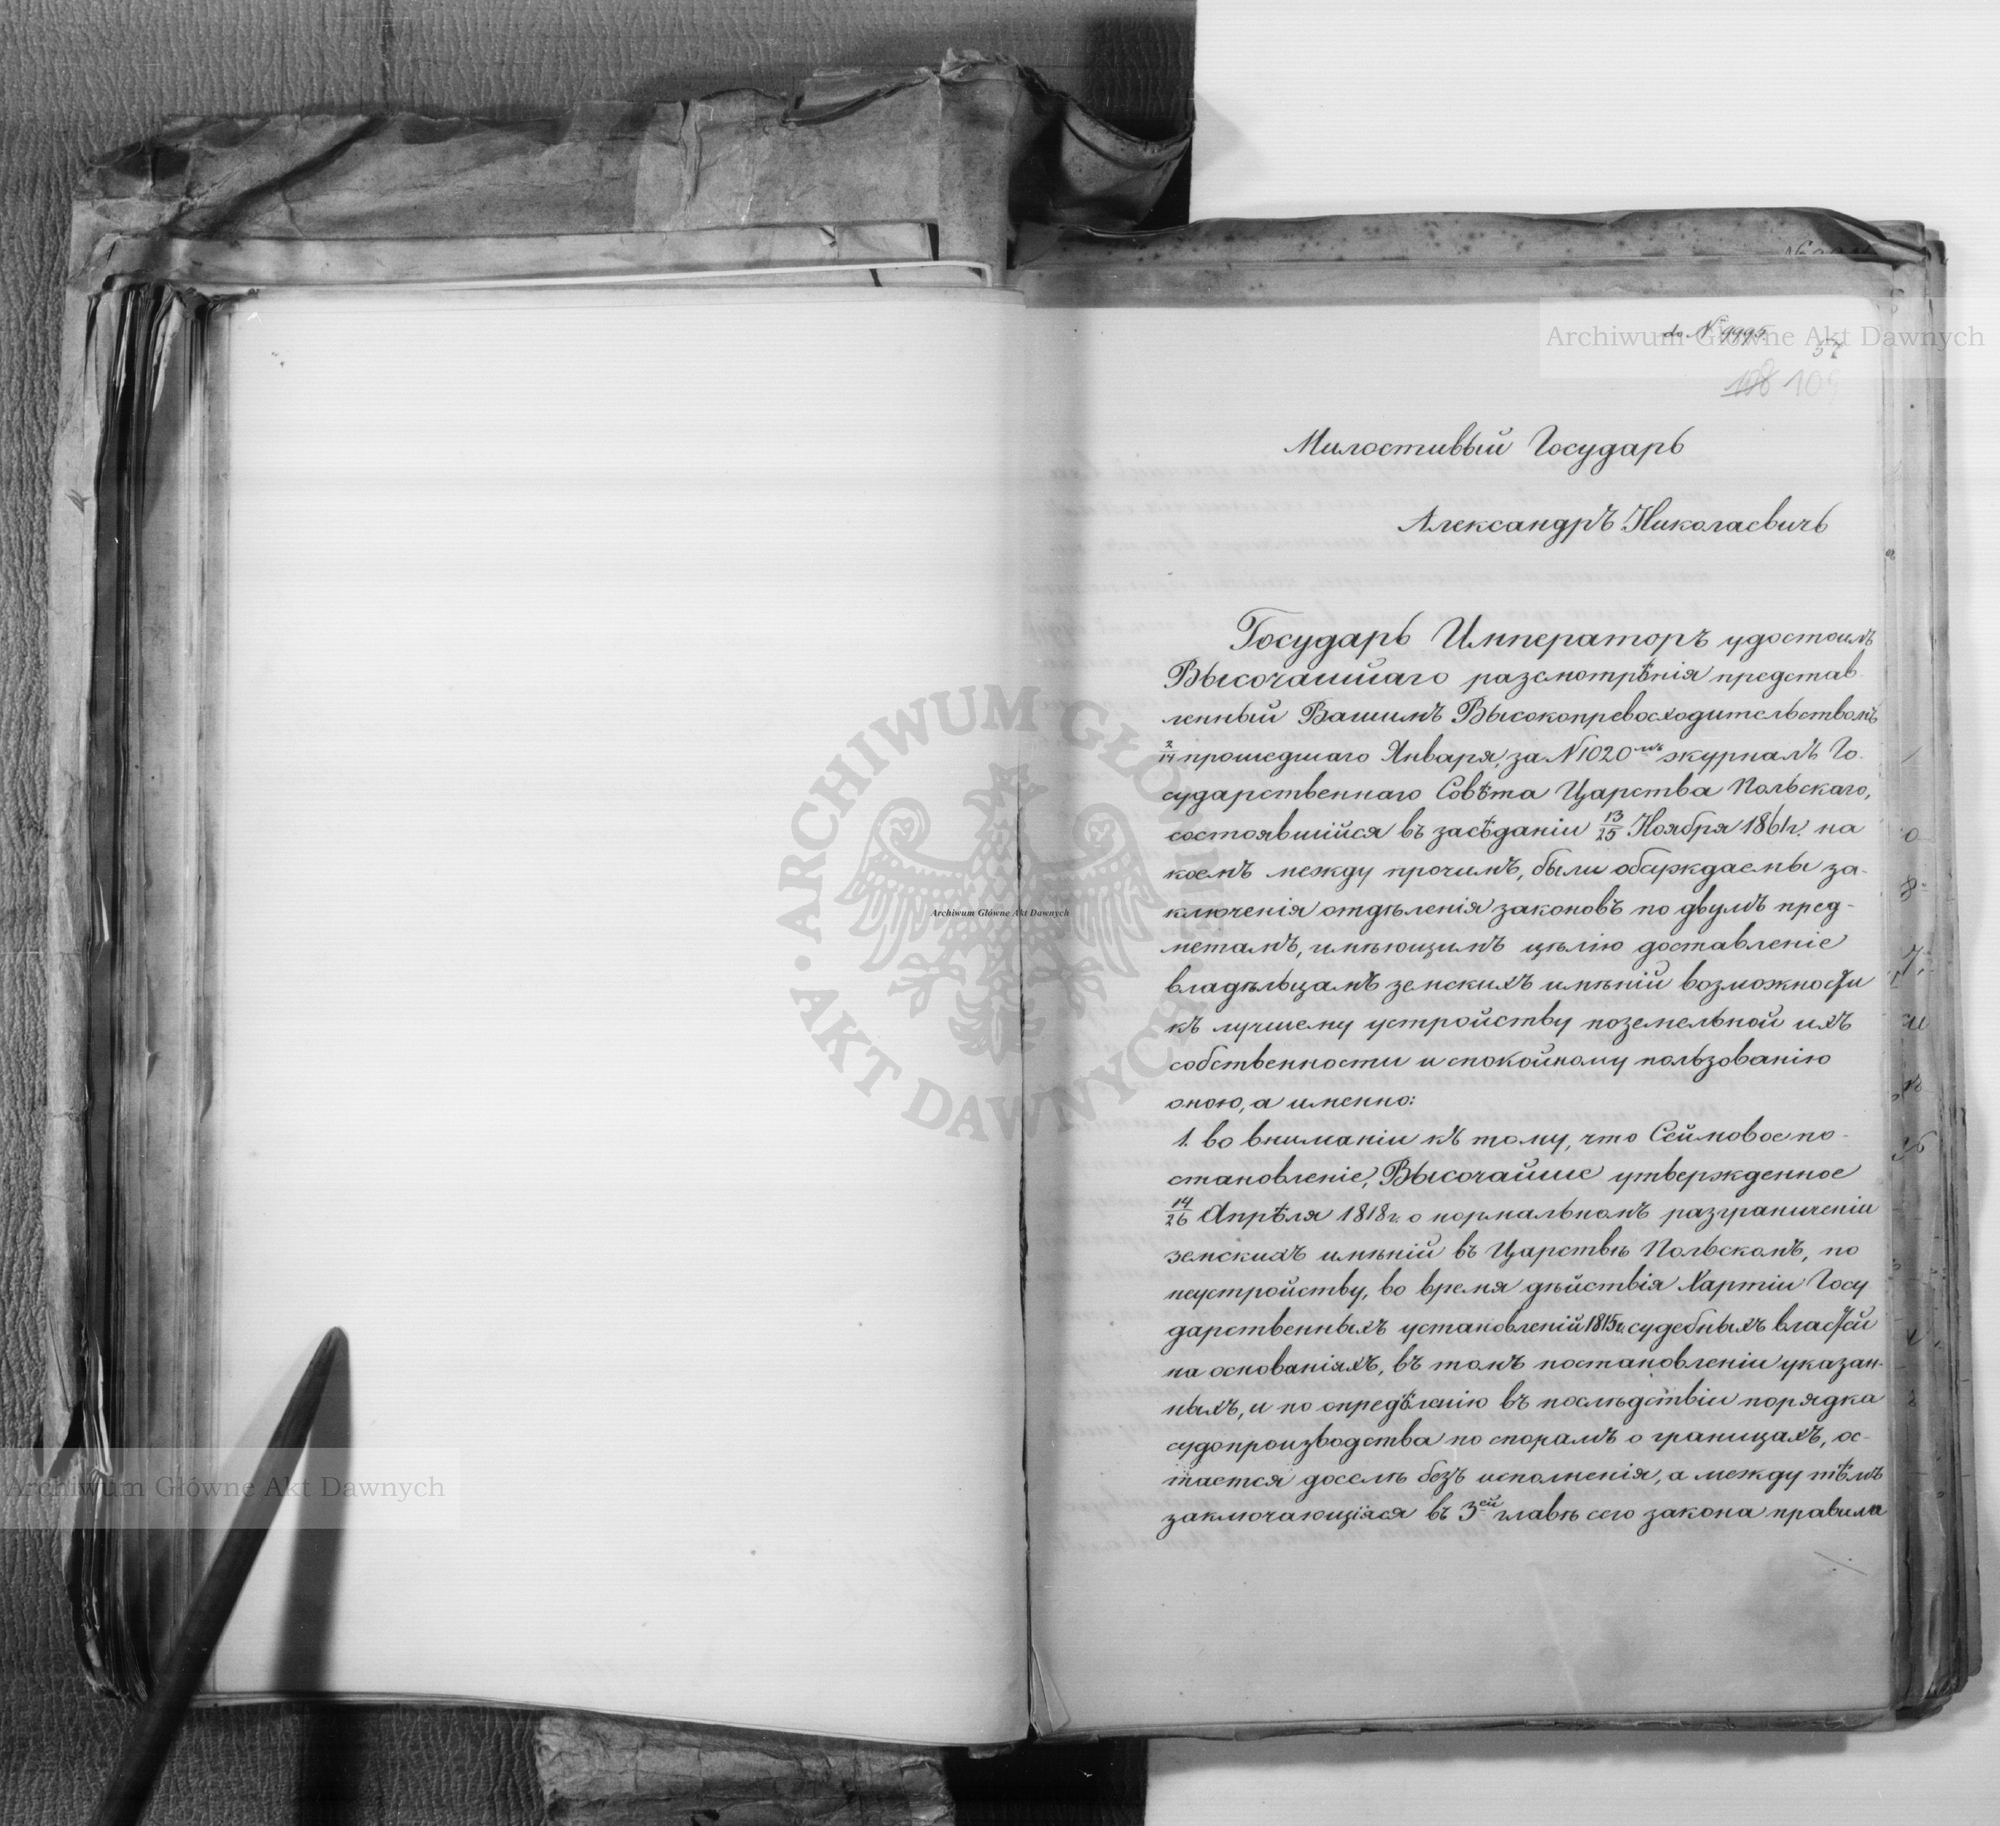 do № 9995
57
108 109
Милостивый Государь
Александръ Николаевичь
Государь Императоръ удостоилъ
Высочайшаго разсмотрѣнія представ-
ленный Вашимъ Высокопревосходительствомъ
2/14 прошедшаго Января, за №1020мъ журналъ Го-
сударственнаго Совѣта Царства Польскаго,
состоявшійся въ засѣданіи 13/25 Ноября 1861г. на
коемъ между прочимъ, были обсуждаемы за-
ключенія отдѣленія законовъ по двумъ пред-
метамъ, имѣющимъ цѣлію доставленіе
владѣльцамъ земскихъ имѣній возможности
къ лучшему устройству поземельной ихъ
собственности и спокойному пользованію
оною, а именно:
1. во вниманіи къ тому, что Сеймовое по-
становленіе, Высочайше утвержденное
14/26 Апрѣля 1818г. о нормальномъ разграниченіи
земскихъ имѣній въ Царствѣ Польскомъ, по
неустройству, во время дѣйствія Хартіи Госу
дарственныхъ установленій 1815г. судебныхъ властей
на основаніяхъ, въ томъ постановленіи указан-
ныхъ, и по опредѣленію въ послѣдствіи порядка
судопроизводства по спорамъ о границахъ, ос-
тается доселѣ безъ исполненія, а между тѣмъ
заключающіяся въ 3ей главѣ сего закона правила
Archiwum Główne Akt Dawnych
ARCHIWUM GŁÓWNE
AKT DAWNYCH
Archiwum Główne Akt Dawnych
Archiwum Główne Akt Dawnych